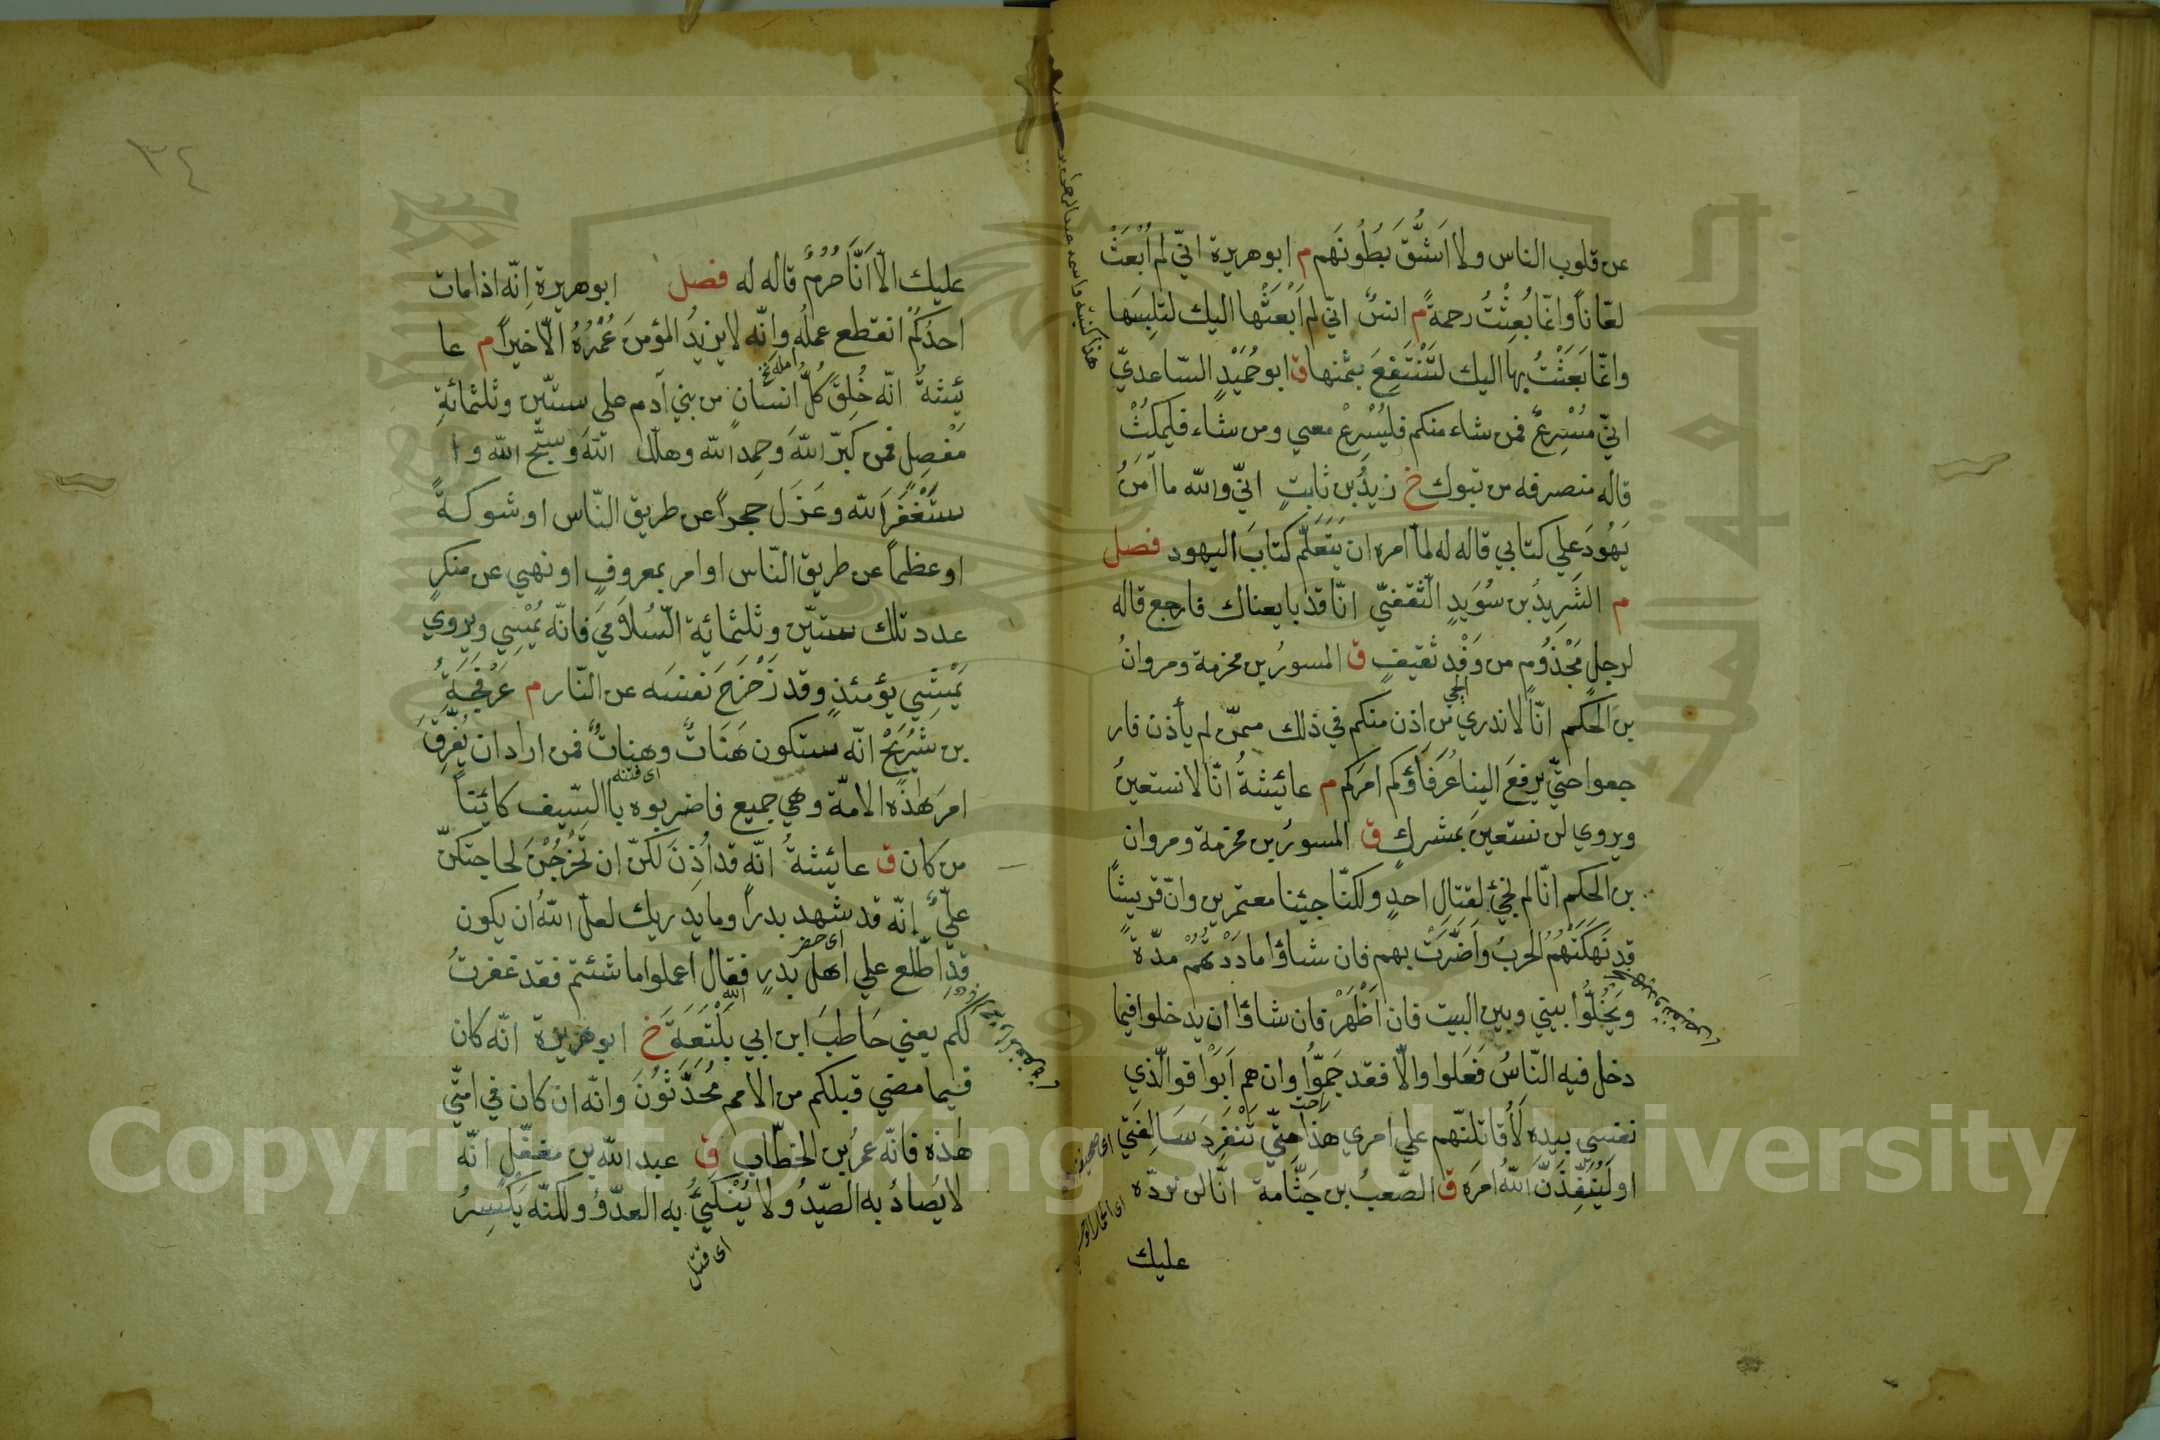 عن قلوب الناس ولا اَشُقَّ بَطُونَهم م ابو هريرة انّي لم اُبْعَثْ
لعّاناً وانّما بُعِثْتُ رحمةً م انسٌ انّي لم اَبْعَثْها اليك لتلبِسَها
وانّما بَعَثْتُ بها اليك لتَنْتَفِعَ بثمنها ق ابو حُمَيْدٍ السّاعديّ
انّي مُسْرِعٌ فمن شاء منكم فليُسْرِعْ معي ومن شاء فليمكُثْ
قاله منصرفه من تبوك خ زيدُ بن ثابتٍ انّي والله ما اٰمَنُ
يَهُودَ علي كتابي قاله له لمّا امره ان يَتَعَلَّم كتابَ اليهود فصل
م الشَرِيدُ بن سُوَيدٍ الثّقفيّ انّا قد بايعناك فارجع قاله
لرجلٍ مَجْذُومٍ من وَفْدِ ثقيفٍ ق المسورُ بن مخرمة ومروانُ
بن الحَكَم انّا لا ندري من اذن منكم في ذلك ممّن لم يأذن فار
جعوا حتّي يرفعَ الينا عُرَفَاؤكم امرَكم م عائيشةُ انّا لا نستعينُ
ويروي لن نستعينَ بمشركٍ ق المسورُ بن مخرمة ومروان
بن الحكم انّا لم نجئ لقتالِ احدٍ ولكنّا جيئنا معتمرين وانّ قريشاً
قد نَهَكَتْهُمُ الحربُ واَضَرَّتْ بهم فان شاؤا مادَدْتُهُمْ مدّة
ويَخُلُّوا بيني وبين البيت فان اَظْهَرْ فان شاؤا ان يدخلوا فيما
دخل فيه النّاسُ فَعَلوا والّا فقد جَمُّوا وان هم اَبَوْا فوالّذي
نفسي بيدِه لَاُقاتلنّهم علي امري هذا حتّي تَنْفَرِدَ سَالِفَتي
او لَيُنَفِّذَنَّ اللهُ امرَه ق الصّعبُ بن جَثّامة انّا لن نردّه
عليك
عليك الّا اَنَّا حُرُمٌ قاله له فصل ابو هريرة اِنّه اذا مات
احدُكُمْ انقطع عملُه وانّه لا يزيدُ المؤمنَ عُمْرُهُ الّا خيراً م عا
ئيشةُ انّه خُلِقَ كُلُّ انسان من بني آدم علي ستّين وثلثمائةِ
مَفْصِلٍ فمن كبّر اللهَ وحمِد الله وهلّل اللهَ وسبّح الله وا
ستَغْفَرَ الله وعَزَل حجراً عن طريق النّاس او شوكةً
او عظماً عن طريق النّاس او امر بمعروفٍ او نهي عن منكرٍ
عدد تلك ستيّن وثلثمائية السّلامَي فانّه يُمْسِي ويروي
يَمْشِي يؤمئذٍ وقد زَحْزَحَ نفسَه عن النّار م عَرْفَجَةِ
بن شُرَيْحٍ انّه ستكون هَنَاتٌ وهنَاتٌ فمن اراد ان يُفَرِّقَ
اى فتنه
امرَ هٰذه الامّة وهي جميع فاضربوه باالسّيف كائيناً
من كان ق عائيشةُ انّه قد اُذِنَ لكنّ ان تَخْرُجْنَ لحاجتكنّ
عليٌّ إنّه قد شهد بدراً وما يدريك لعلّ اللهُ ان يكون
قد اطّلع علي اهل بدرٍ فقال اعملوا ما شئتم فقد غفرتُ
لكم يعني حَاطبَ ابن ابي بَلْتَعَةَ خ ابو هريرة انّه كان
فيما مضي قبلكم من الامم مُحَدَّثُونَ وانّه ان كان في امتّي
هٰذه فانّه عمرُ بن الخطّاب ق عبد الله بن مغفّلٍ انّه
لا يُصادُ به الصّيدُ ولا يُنْكَيُ به العدّوُ ولكنّه يَكْسِرُ
اى قتل
٣٤
Copyright © King Saud University